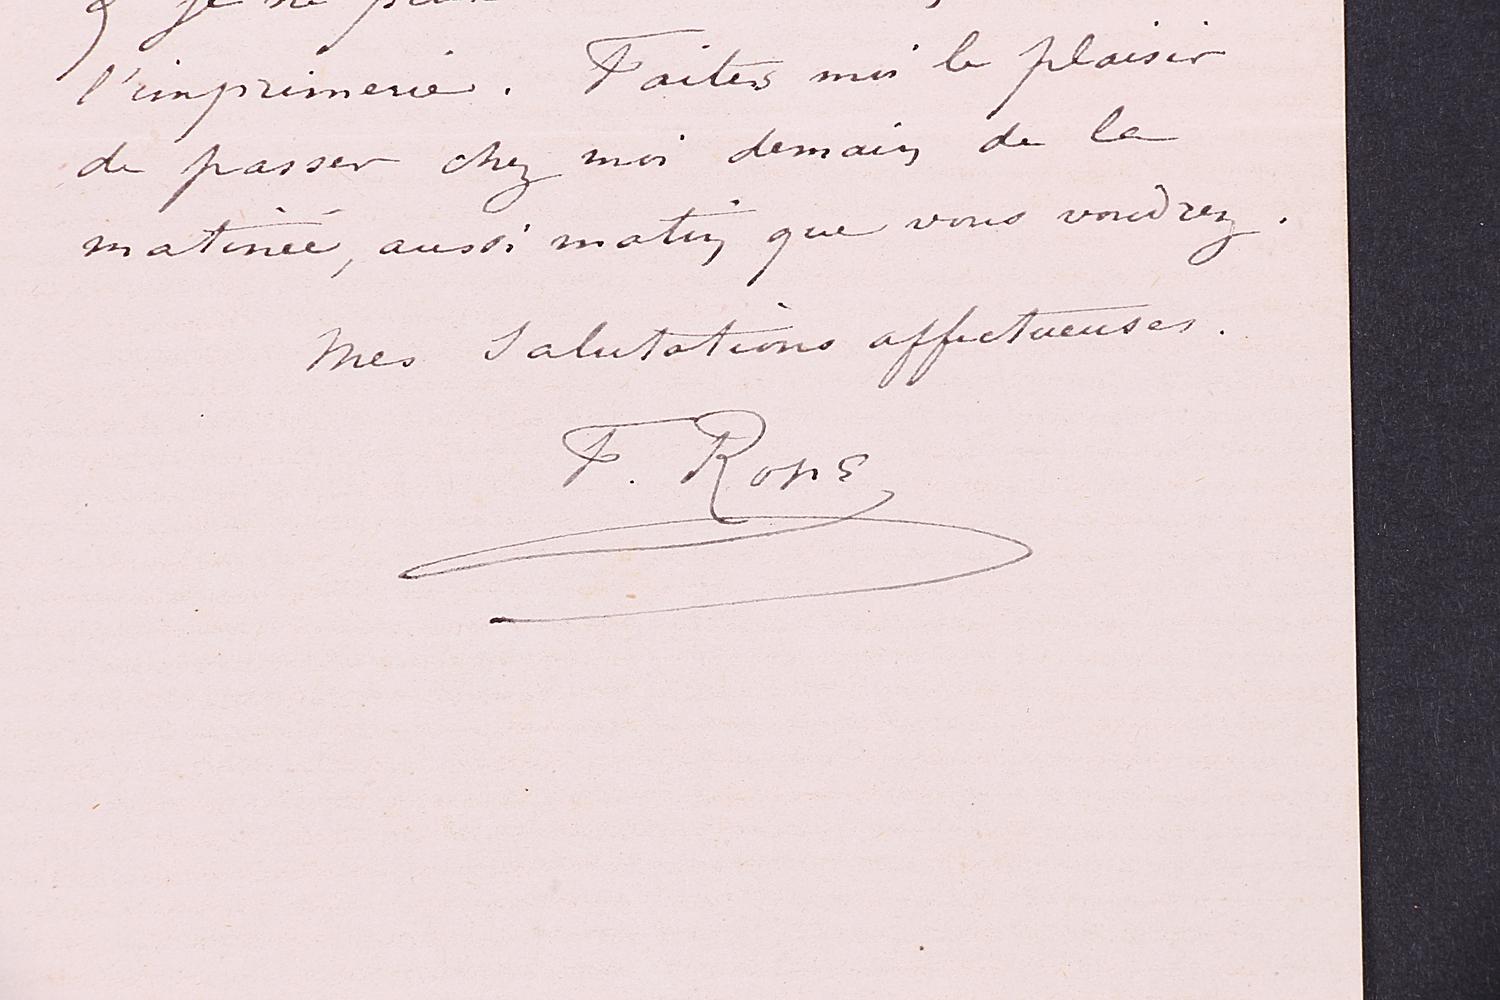 & je ne peux
l'imprimerie. Faites moi le plaisir
de passer chez moi demain de la
matinée, aussi matin que vous voudrez.
Mes Salutations affectueuses.
F. Rops